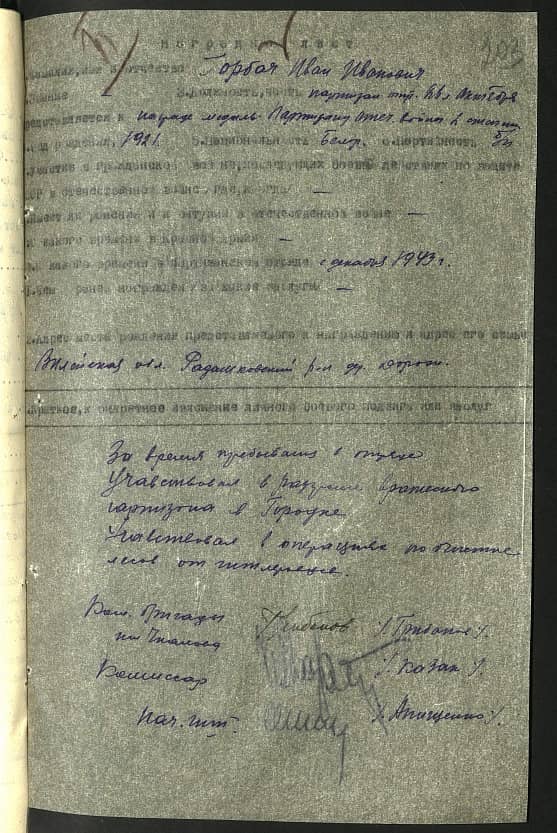 203
Наградной лист
Фамилия, имя и отчество Горбач Иван Иванович
Звание - 3. Должность, часть партизан отр.
представляется к награде медаль Партизану отеч. войны 2 степени
год рождения, 1921 5. Национальность Белор. 6. Партийность б/п
участие в гражданской войне, последующих боевых действиях по защите
СССР и отечественной войне, где, когда -
имеет ли ранения и контузии в отечественной войне -
с какого времени в Красной армии -
с какого времени в партизанском отряде с декабря 1943 г.
чем ранее награжден за какие заслуги -
Адрес места рождения представляемого к награждению и адрес его семьи
Вилейская обл. Радошковский р-н др.
Краткое, конкретное изложение личного боевого подвига или заслуг
За время пребывания в отряде
Участвовал в разгроме вражеского
гарнизона в Городке
Участвовал в операциях по очистке
лесов от гитлеровцев.
Ком. бригады
им Чкалова /Грибанов/.
Комиссар /. Казак /.
Нач. шт. /. Анищенко /.